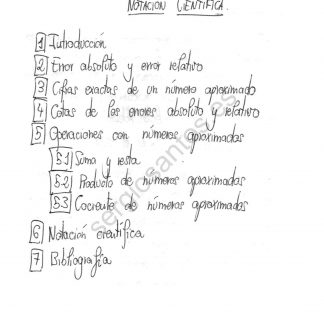 NOTACIÓN CIENTÍFICA.
1 Introducción
2 Error absoluto y error relativo
3 Cifras exactas de un número aproximado
4 Cotas de los errores absoluto y relativo
5 Operaciones con números aproximados
5.1 Suma y resta
5.2 Producto de números aproximados
5.3 Cociente de números aproximados
6 Notación científica
7 Bibliografía
sergiosanjos.es